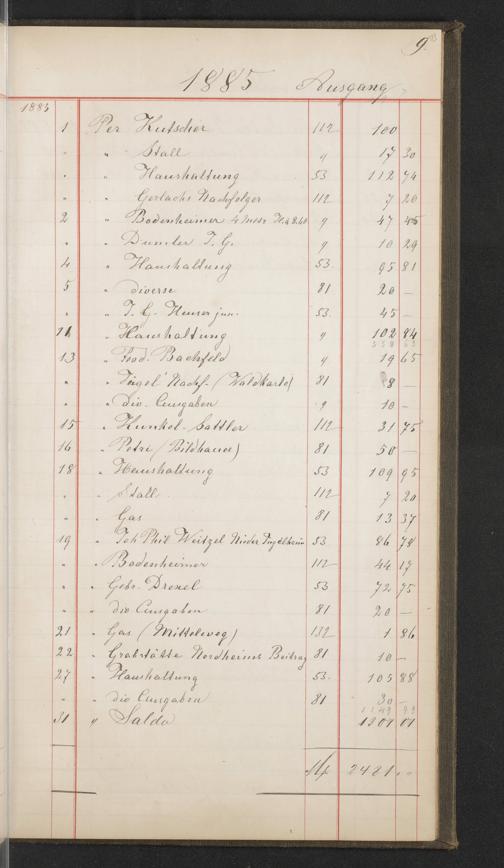 9.
1885 Ausgang.
1885
1 Per Kutscher 112 100
" " Stall " 17 30
" " Haushaltung 53 112 74
" " Gerlachs Nachfolger 112 7 20
2 " Bodenheimer 9 47 45
" " J. G. 9 10 29
4 " Haushaltung 53. 95 81
5 " diverse 81 20 —
" " J. G. Heuser jun. 53. 45 —
11 " Haushaltung " 102 84
13 " Ferd. Bachfeld " 19 65
" " Nachf. (Waldkarte) 81 8 —
" " div. Ausgaben " 10 —
15 " Kunkel-Sattler 112 31 75
16 " Petri (Bildhauer) 81 50 —
18 " Haushaltung 53 109 95
" " Stall. 112 7 20
" " Gas 81 13 37
19 " Joh Phil Weitzel Nieder Ingelheim 53 86 78
" " Bodenheimer 112 44 17
" " Gebr. Drexel 53 72 75
" " div Ausgaben 81 20 —
21 " Gas (Mittelweg) 132 1 86
22 " Grabstätte Nordheims Beitrag 81 10 —
27 " Haushaltung 53. 105 88
" " div Ausgaben 81 30 —
31 " Saldo
M 2421 ..